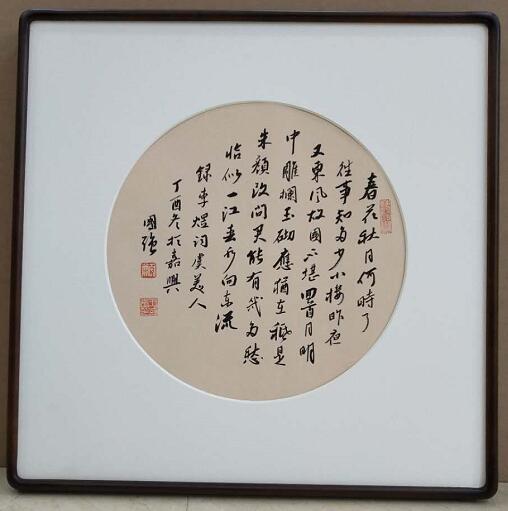 春花秋月何時了
往事知多少小樓昨夜
又東風故國不堪回首月明
中雕欄玉砌應猶在祗是
朱顏改問君能有幾多愁
恰似一江春水向東流
錄李煜詞虞美人
丁酉冬於嘉興
國強